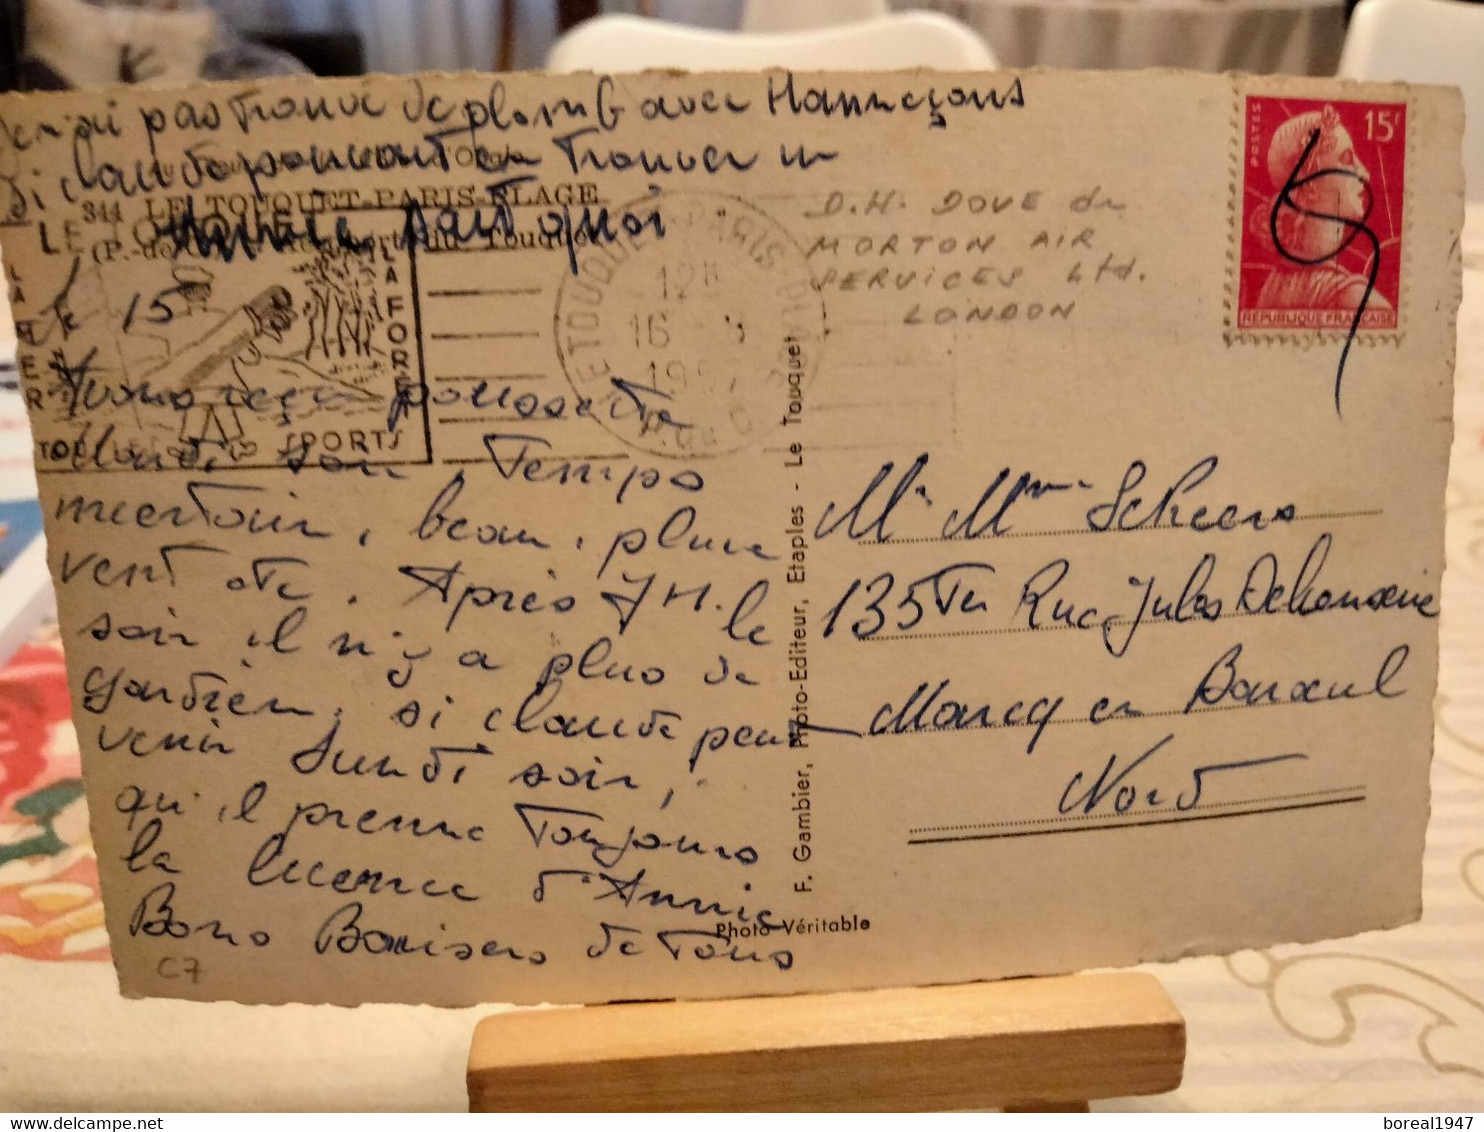 Je n'ai pas trouvé de plomb avec Hameçons
Si claude pouvait en trouver un
344 LE TOUQUET-PARIS-PLAGE
Annie sait quoi
LE TOUQUET
(P.-de-C.) du Touquet
LA MER
LA FORET
SPORTS
LE TOUQUET-PARIS-PLAGE
12H
16
1957
P. de C.
le 15
Avons reçu poussette
claude son, Temps
incertain, beau, pluie
vent etc. Après 7H. le
soir il n'y a plus de
gardien. si claude peut
venir Lundi soir,
qu'il prenne Toujours
la licence d'Annie
Bons Baisers de Tous
C7
D.H. DOVE de
MORTON AIR
SERVICES Ltd.
LONDON
POSTES
15F
REPUBLIQUE FRANÇAISE
F. Gambier, Photo-Editeur, Etaples - Le Touquet
Photo Véritable
Mr Mme Scheers
135 Ter Rue Jules Delcenserie
Marcq en Baroeul
Nord
boreal1947